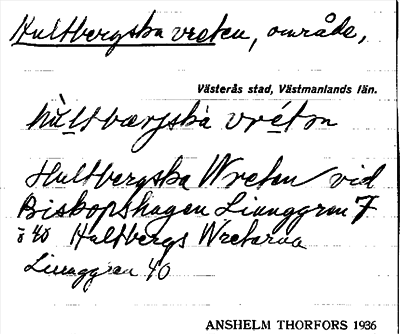 Hultbergska vreten, område,
Västerås stad, Västmanlands län.
hùltbærjskà vréton
Hultbergska Wreten vid
Biskopshagen Linnggren 7
o 40 Hultbergs Wretarna
Linnggren 40
ANSHELM THORFORS 1936